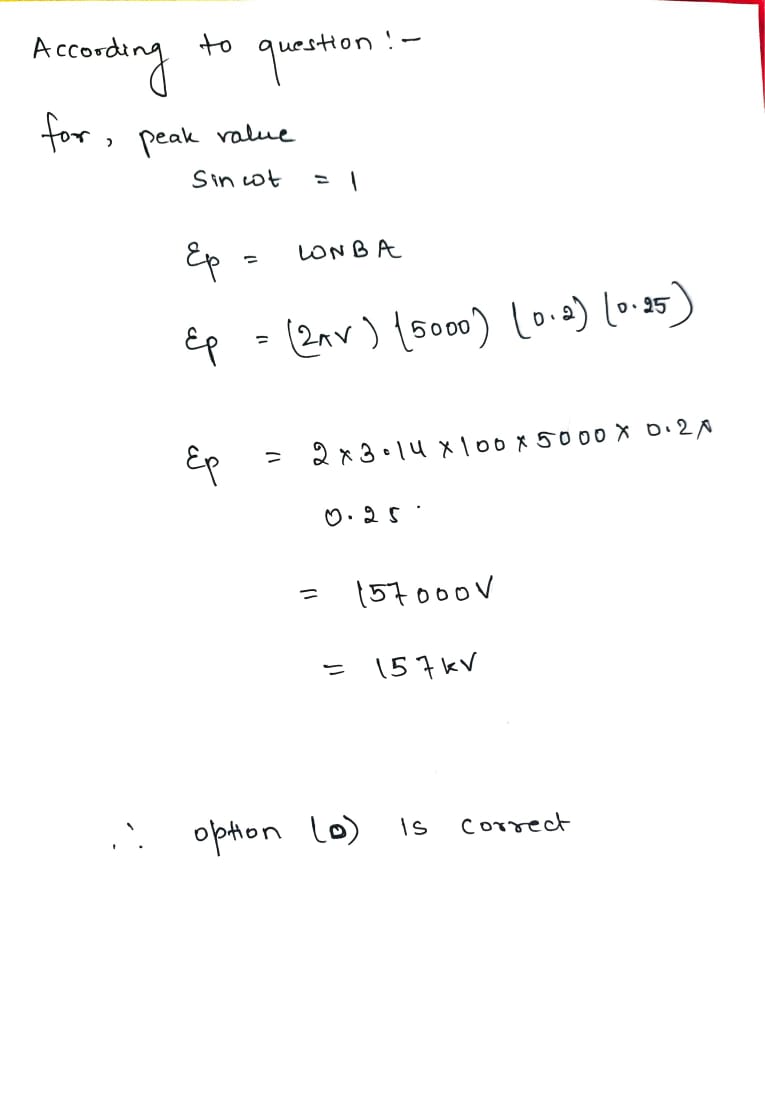 According to question :-
for, peak value
Sin ωt = 1
Ep = ωNBA
Ep = (2πν) (5000) (0.2) (0.25)
Ep = 2 × 3.14 × 100 × 5000 × 0.2 ×
0.25
= 157000V
= 157kV
∴ option (D) is correct